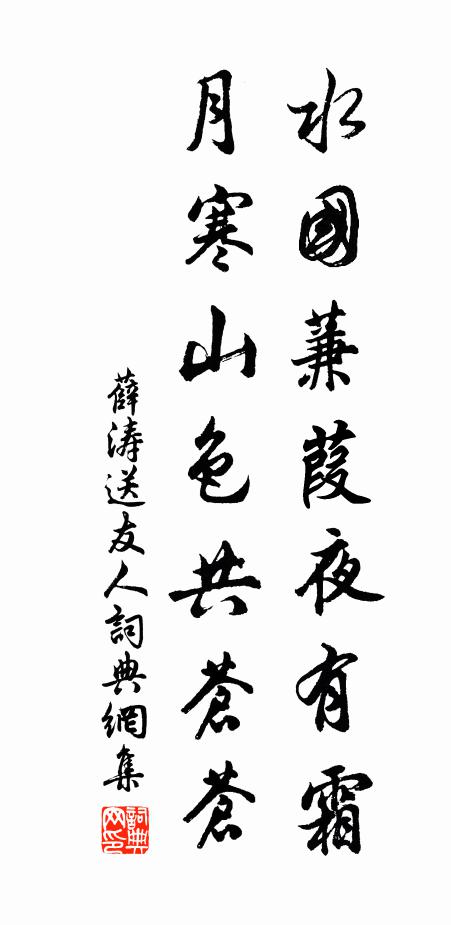 水國蒹葭夜有霜
月寒山色共蒼蒼
薛濤送友人詞典網集
詞典
网印